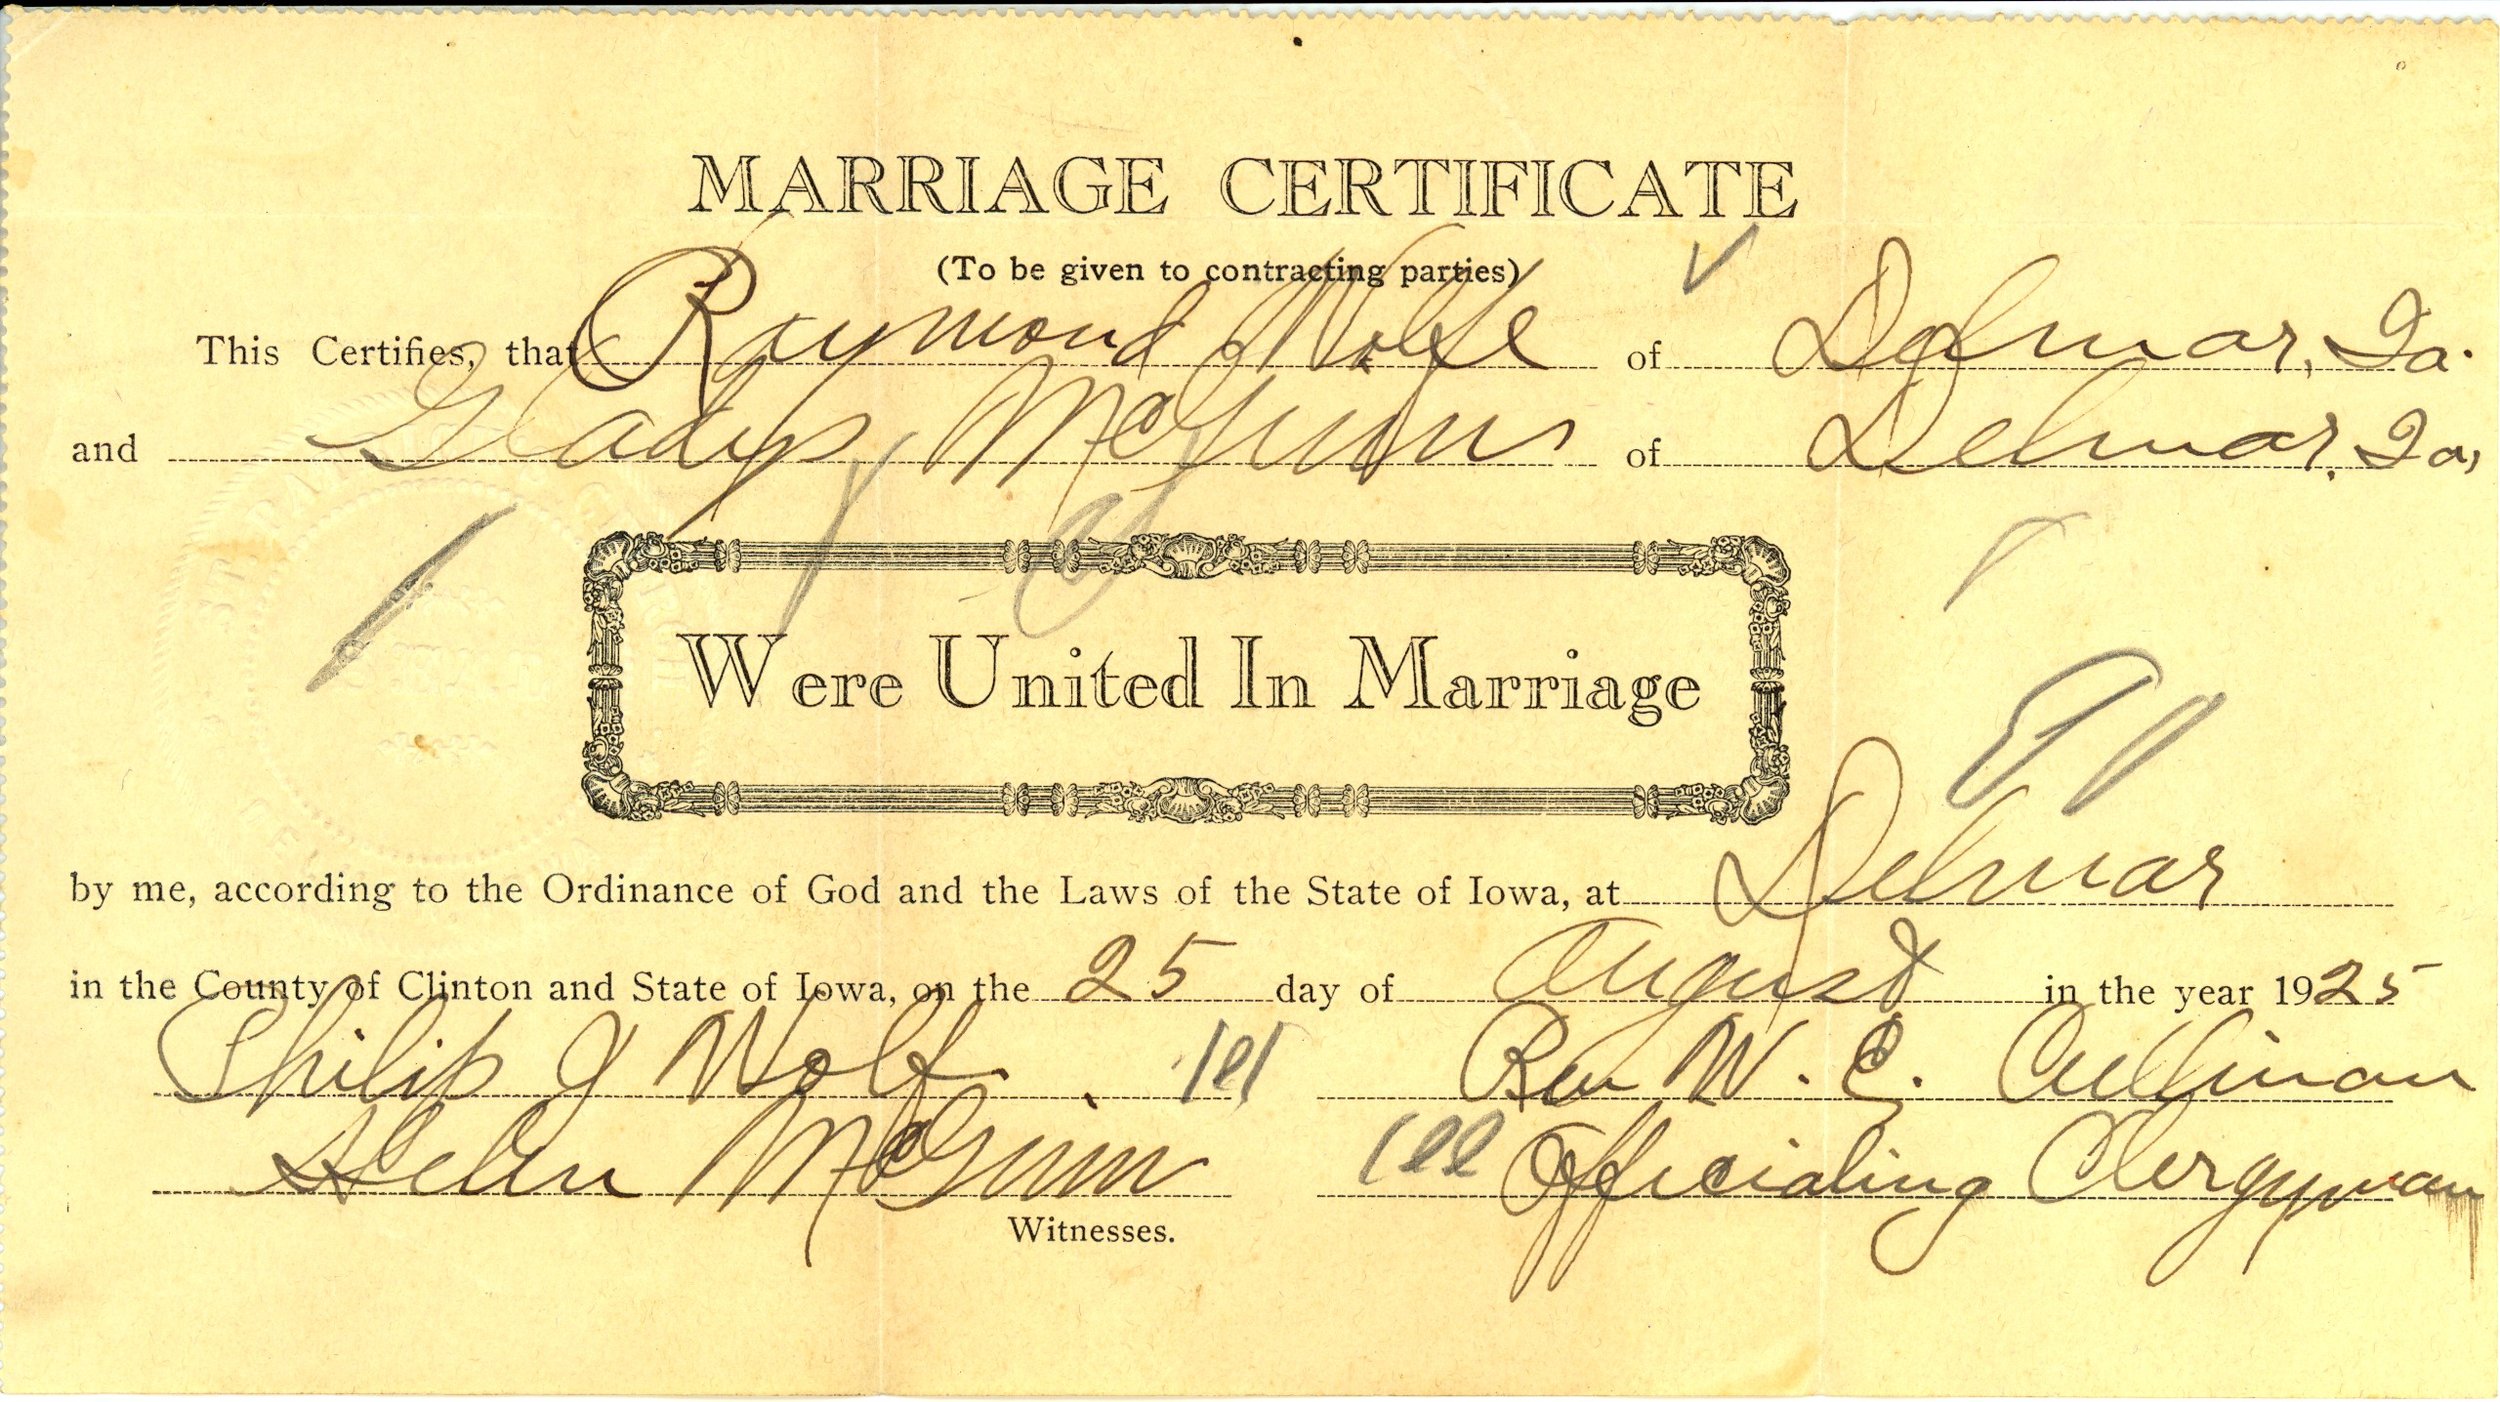 MARRIAGE CERTIFICATE
(To be given to contracting parties)
This Certifies, that Raymond Wolfe of Delmar, Ia.
and Gladys McGinnis of Delmar, Ia,
Were United In Marriage
by me, according to the Ordinance of God and the Laws of the State of Iowa, at Delmar
in the County of Clinton and State of Iowa, on the 25 day of August in the year 1925
Philip J Wolf. Rev W. E. Cullinan
Helen McGinn Officiating Clergyman
Witnesses.